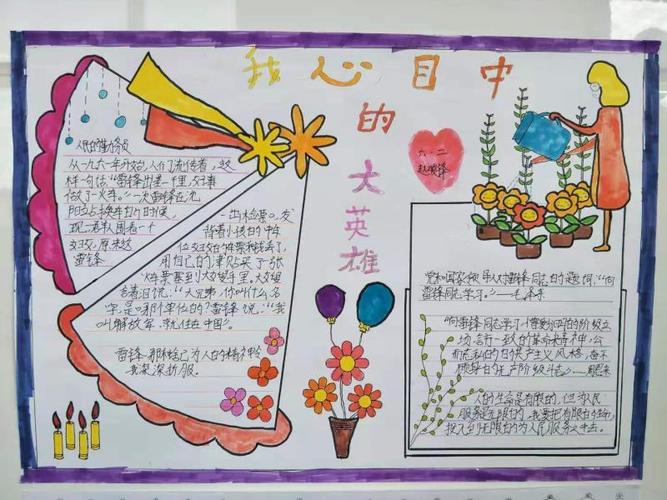 我心目中
的
大
英
雄
六·二
人民的勤务员
从一九六一年开始,人们流传着,这
样一句话:"雷锋出差一千里,好事
做了一火车。"一次雷锋在沈
阳站换车的时候,
现一群人围着一个
妇女,原来这
雷锋
一出检票口,发
背着小孩的中年
位妇女的车票和钱丢了,
用自己的津贴买了一张
火车票塞到大嫂手里,大嫂
含着泪说:"大兄弟,你叫什么名
字,是哪个单位的?"雷锋说:"我
叫解放军,就住在中国。"
雷锋那种舍己为人的精神令
我深深折服。
党和国家领导人对雷锋同志的题词:"向
雷锋同志学习。"——毛泽东
向雷锋同志学习憎爱分明的阶级立
场,言行一致的革命精神,公
而忘私的共产主义风格,奋不
顾身的无产阶级斗志。——周恩来
人的生命是有限的,但为人民
服务是无限的,我要把有限的生命
投入到无限的为人民服务之中去。